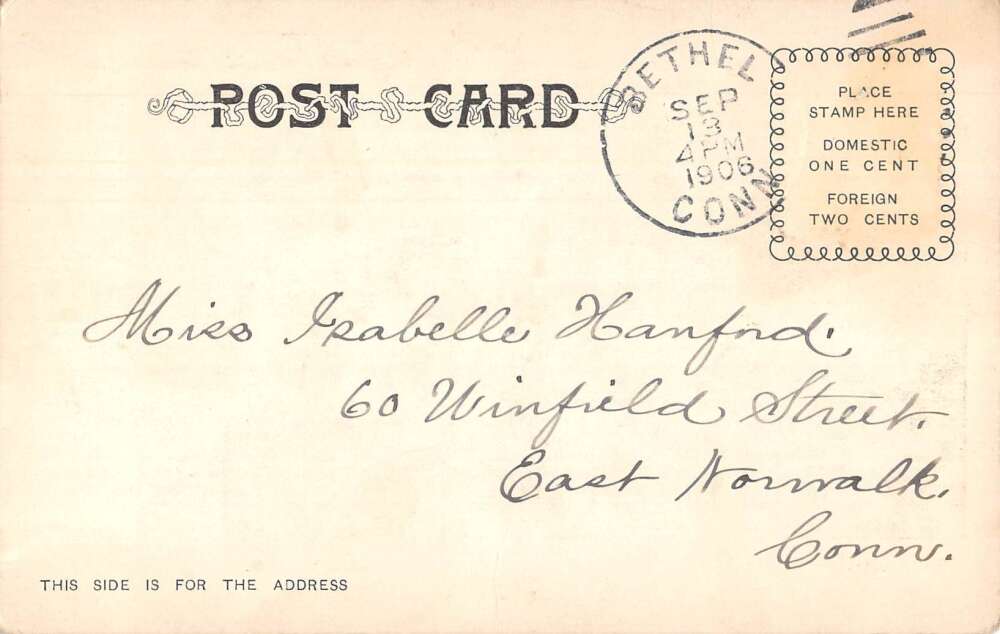 POST CARD
BETHEL
SEP
13
4 PM
1906
CONN
PLACE
STAMP HERE
DOMESTIC
ONE CENT
FOREIGN
TWO CENTS
Miss Isabelle Hanford.
60 Winfield Street.
East Norwalk.
Conn.
THIS SIDE IS FOR THE ADDRESS